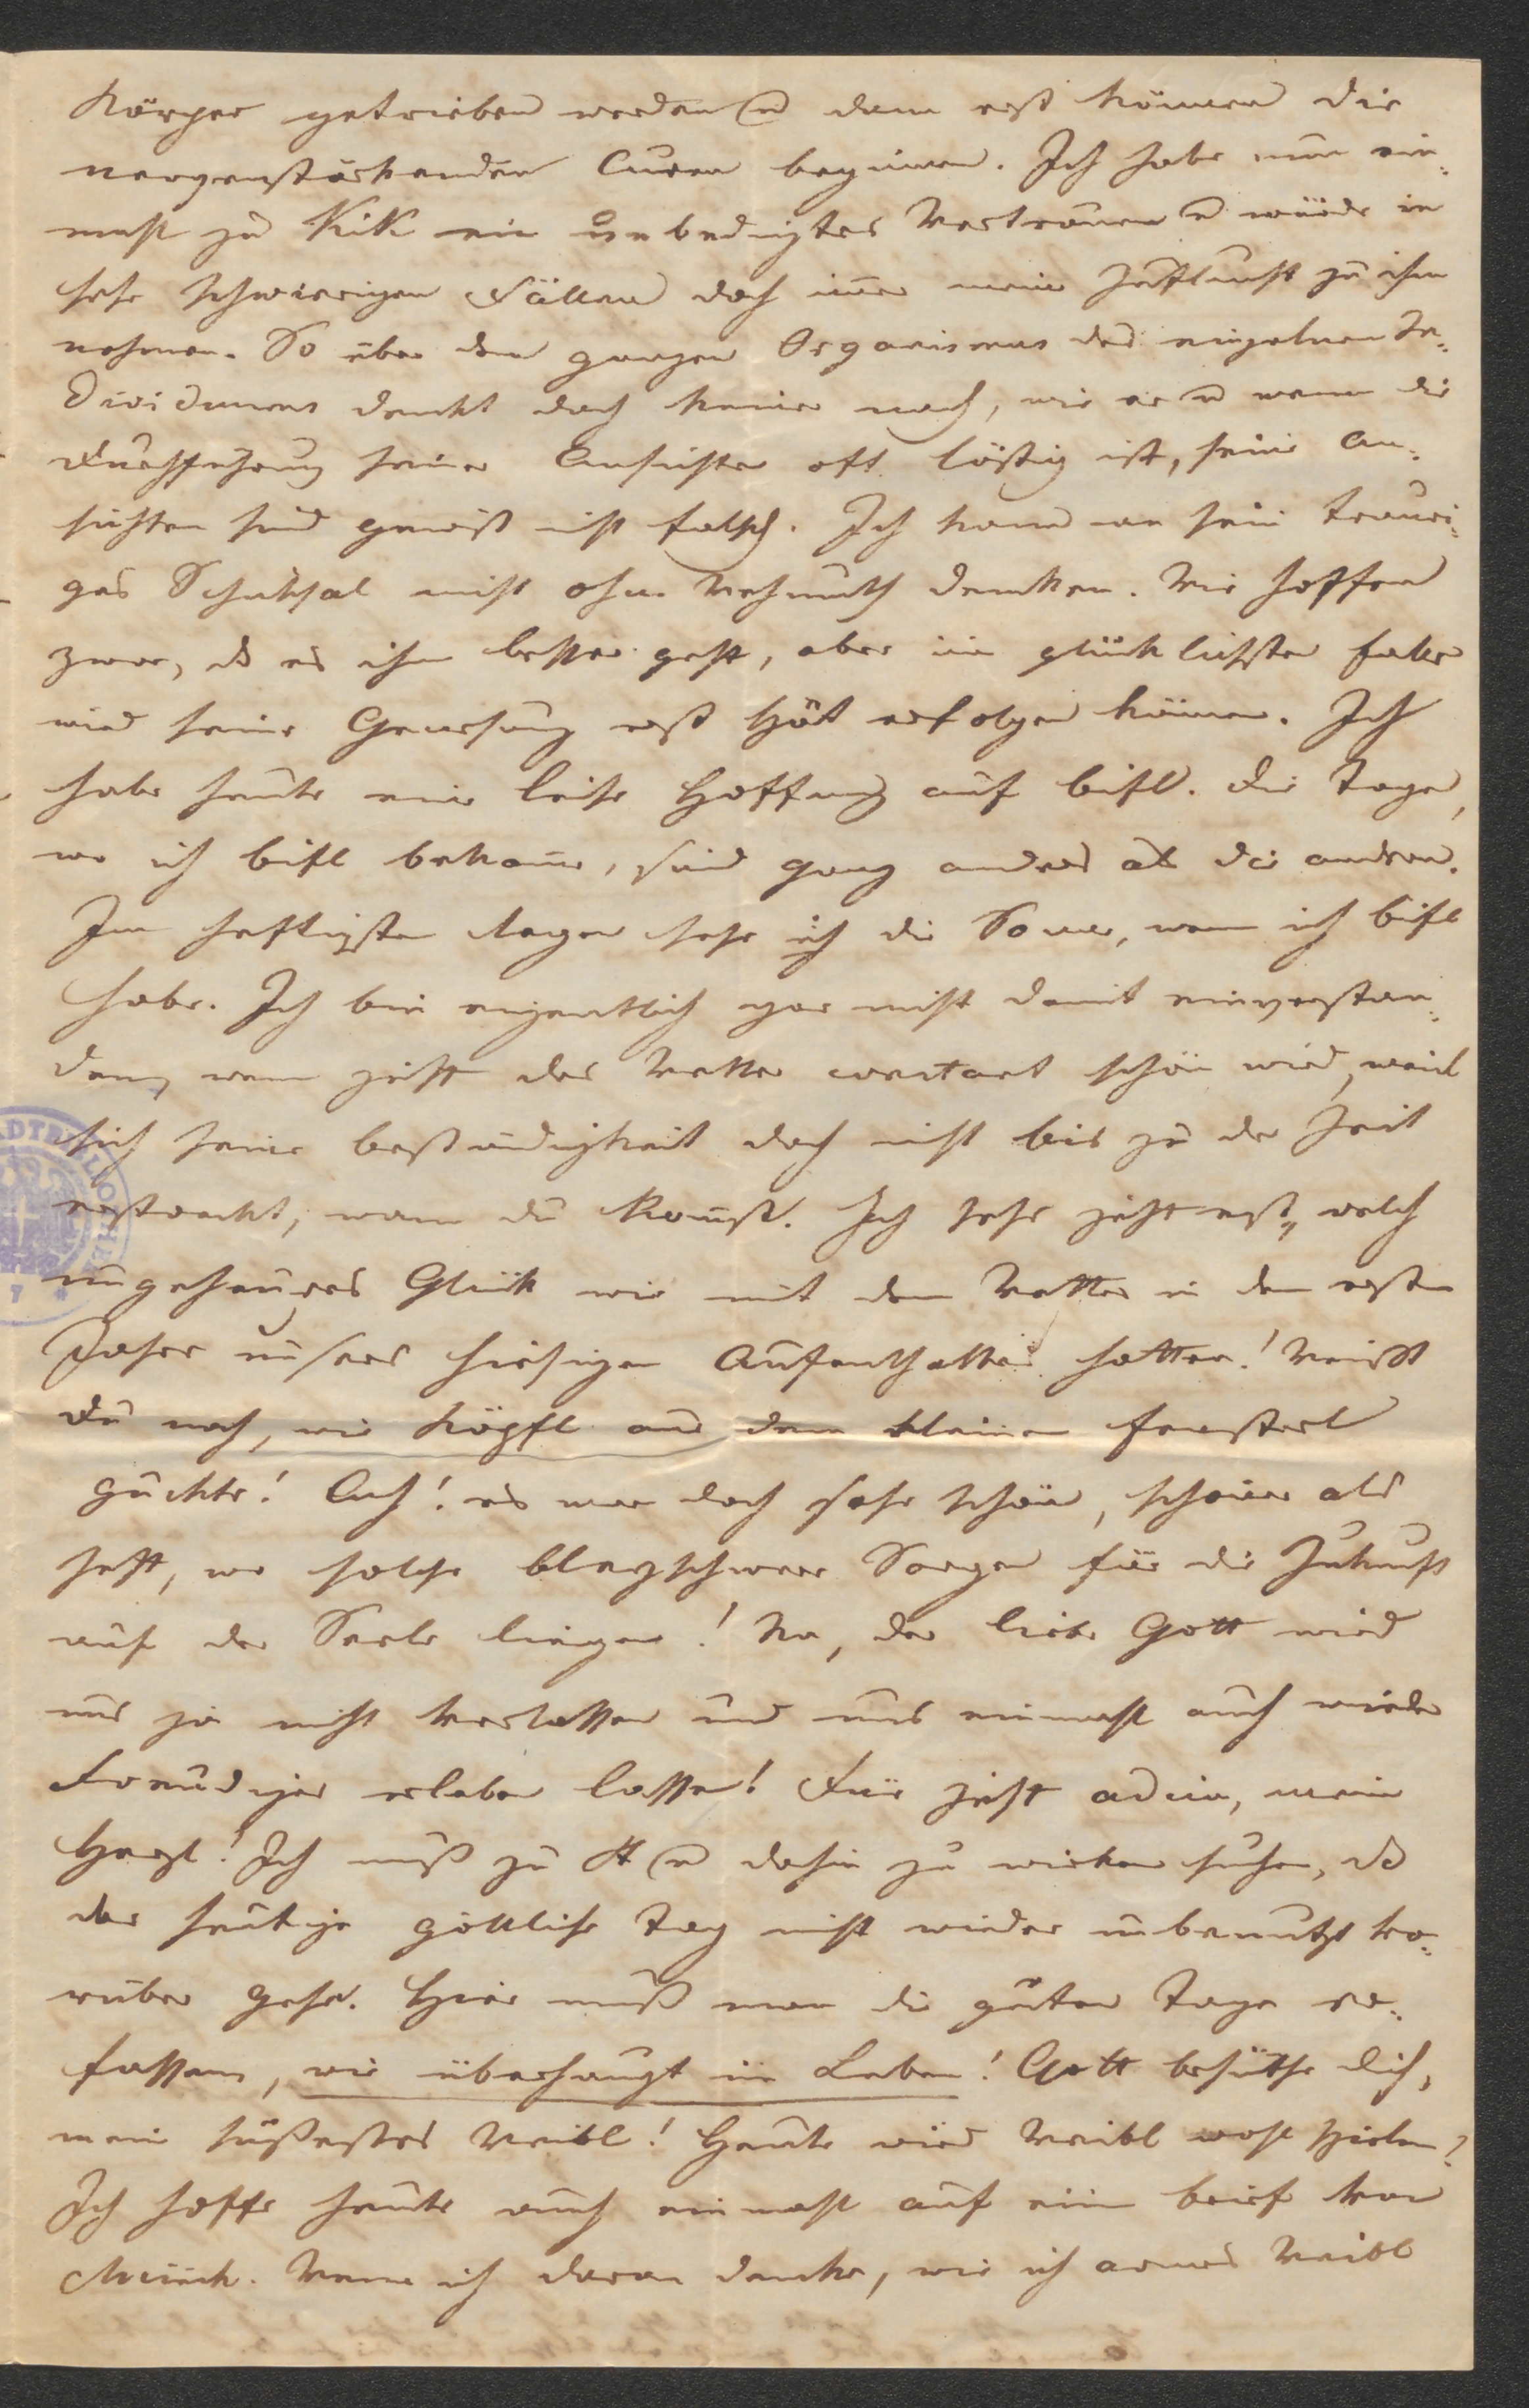 Körper getrieben werden u dann erst können die
nervenstärkenden Curen beginnen. Ich habe nun ein¬
mahl zu KiK ein unbedingtes Vertrauen u würde in
sehr schwierigen Fällen doch im̅er meine Zuflucht zu ihm
nehmen. So über den ganzen Organismus des einzelnen In¬
dividuums denkt doch keiner nach, wie er u wenn die
Durchführung seiner Ansichten oft lästig ist, seine An¬
sichten sind gewiß nicht falsch. Ich kann an sein trauri¬
ges Schicksal nicht ohne Wehmuth denken. Wir hoffen
zwar, dß es ihm besser geht, aber im glücklichsten Falle
wird seine Genesung erst spät erfolgen können. Ich
habe heute eine leise Hoffnung auf bifl. Die Tage,
wo ich bifl bekom̅e, sind ganz anders als die andren.
Im heftigsten Regen sehe ich die Sonne, wenn ich bifl
habe. Ich bin eigentlich gar nicht damit einverstan¬
den, wenn jetzt das Wetter constant schön wird, weil
sich seine Beständigkeit doch nicht bis zu der Zeit
erstreckt, wann du kom̅st. Ich sehe jetzt erst, welch
ungeheures Glück wir mit dem Wetter in den ersten
Jahren unsres hiesigen Aufenthaltes hatten! Weißt
du noch, wie Köpfl aus dem kleinen Fensterl
guckte! Ach! es war doch sehr schön, schöner als
jetzt, wo solche bleyschwere Sorgen für die Zukunft
auf der Seele liegen! Na, der liebe Gott wird
uns ja nicht verlassen und uns einmahl auch wieder
Freudiges erleben lassen! Für jetzt adieu, mein
Herzl! Ich muß zu A u dahin zu wirken suchen, dß
der heutige göttliche Tag nicht wieder unbenutzt vo¬
rüber gehe. Hier muß man die guten Tage er¬
fassen, wie überhaupt im Leben! Gott behüthe dich,
mein süßestes Weibl! Heute wird Weibl wohl spielen?
Ich hoffe heute auch einmahl auf einen Brief von
Münch. Wenn ich daran denke, wie ich armes Weibl